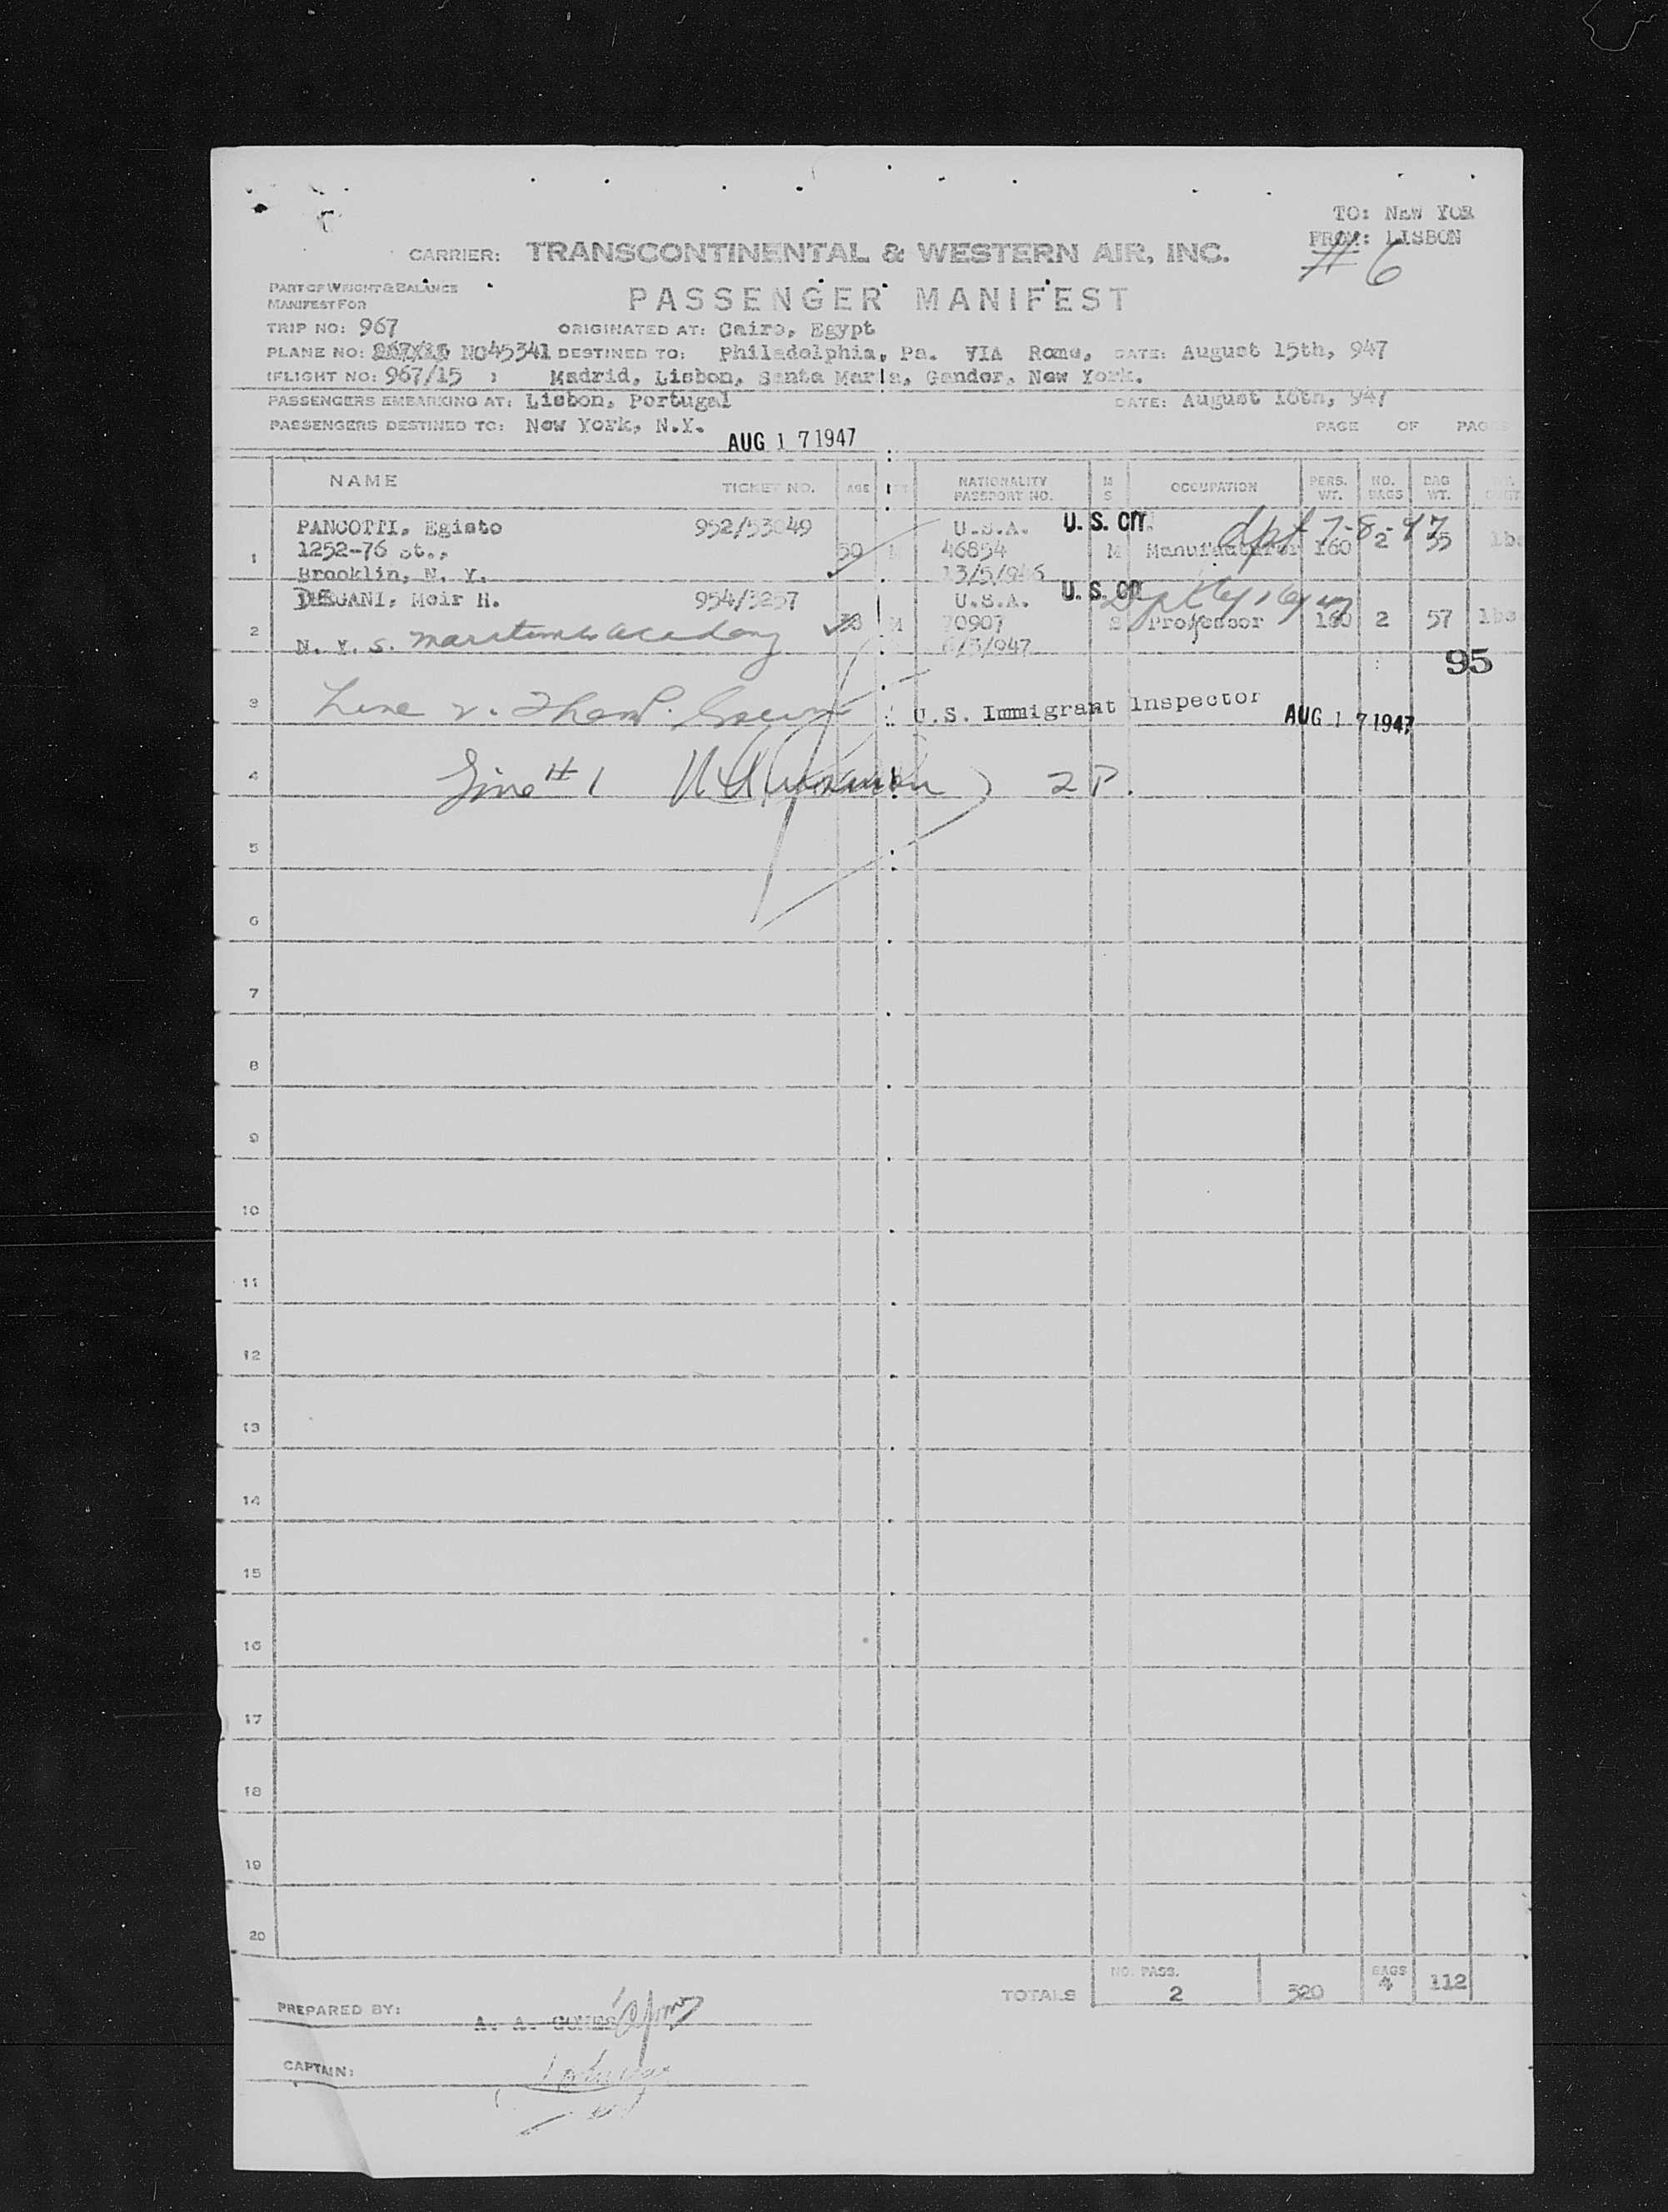 TO: NEW YOR
FROM: LISBON
# 6
CARRIER: TRANSCONTINENTAL & WESTERN AIR, INC.
PART OF WEIGHT & BALANCE
MANIFEST FOR
PASSENGER MANIFEST
TRIP NO: 967 ORIGINATED AT: Cairo, Egypt
PLANE NO: NC45341 DESTINED TO: Philadelphia, Pa. VIA Rome, DATE: August 15th, 947
(FLIGHT NO: 967/15 ) Madrid, Lisbon, Santa Maria, Gander, New York.
PASSENGERS EMBARKING AT: Lisbon, Portugal DATE: August 16th, 947
PASSENGERS DESTINED TO: New York, N.Y. PAGE OF PAGES
AUG 17 1947
NAME TICKET NO. AGE SEX NATIONALITY PASSPORT NO. M S OCCUPATION PERS. WT. NO. BAGS BAG WT.
PANCOTTI, Egisto 952/53049 U.S.A. U.S. CIT. dpt 7-8-47
1 1252-76 st., 50 M 46854 M Manufacturer 160 2 55 lbs
Brooklin, N. Y. 13/5/946
DEGANI, Meir H. 954/3257 U.S.A. U.S. CIT.
2 M 70907 S Professor 160 2 57 lbs
N. Y. S. Maritime Academy 6/3/947
95
3 Line 2. U.S. Immigrant Inspector AUG 17 1947
4 Line # 1 2 P.
5
6
7
8
9
10
11
12
13
14
15
16
17
18
19
20
TOTALS NO. PASS. 2 320 BAGS 4 112
PREPARED BY: A. A. GOMES
CAPTAIN: